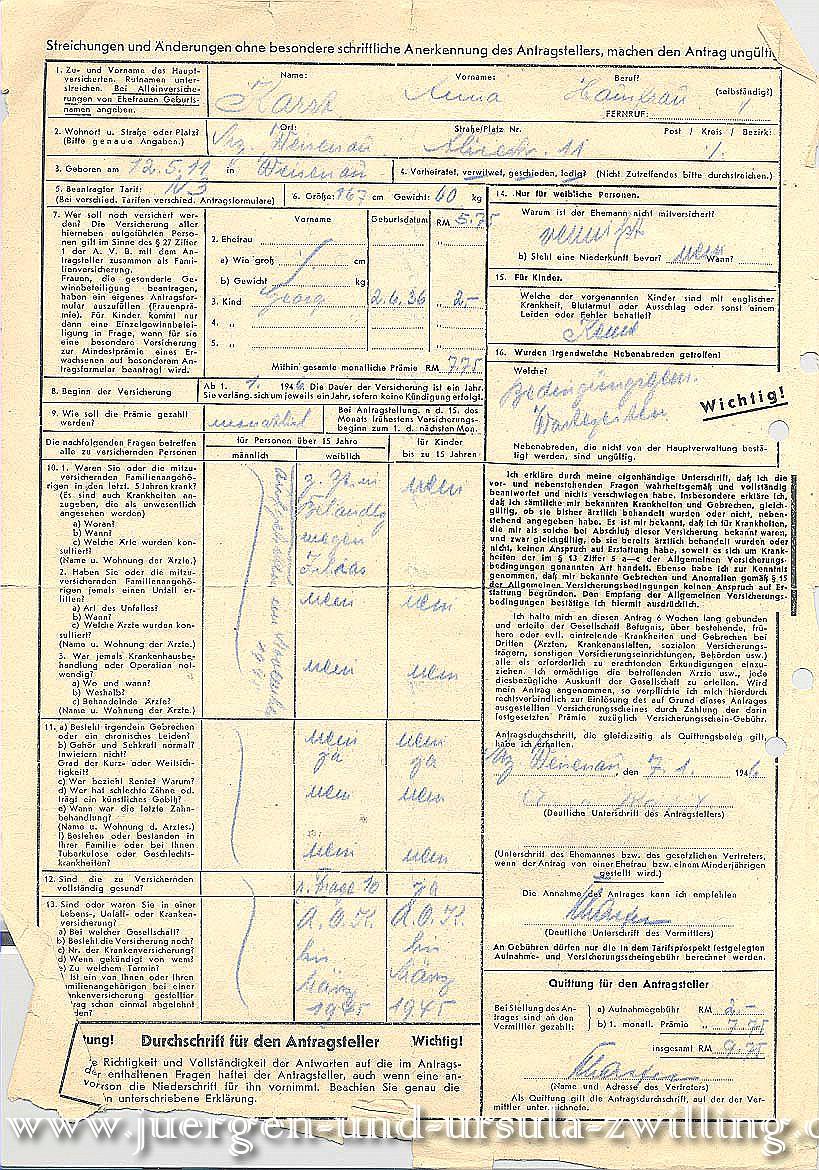 Streichungen und Änderungen ohne besondere schriftliche Anerkennung des Antragstellers, machen den Antrag ungültig
1. Zu- und Vorname des Haupt-
versicherten. Rufnamen unter-
streichen. Bei Alleinversiche-
rungen von Ehefrauen Geburts-
namen angeben.
Name: Vorname: Beruf?
Karst Anna Hausfrau (selbständig?)
FERNRUF:
2. Wohnort u. Straße oder Platz?
(Bitte genaue Angaben.)
Ort: Straße/Platz Nr. Post / Kreis / Bezirk:
11
3. Geboren am 12.5.11 in
4. Verheiratet, verwitwet, geschieden, ledig? (Nicht Zutreffendes bitte durchstreichen.)
5. Beantragter Tarif:
(Bei verschied. Tarifen verschied. Antragsformulare)
6. Größe: 167 cm Gewicht: 60 kg
7. Wer soll noch versichert wer-
den? Die Versicherung aller
hierneben aufgeführten Perso-
nen gilt im Sinne des § 27 Ziffer
1 der A. V. B. mit dem An-
tragsteller zusammen als Fami-
lienversicherung.
Frauen, die gesonderte Ge-
winnbeteiligung beantragen,
haben ein eigenes Antragsfor-
mular auszufüllen (Frauenprä-
mie). Für Kinder kommt nur
dann eine Einzelgewinnbetei-
ligung in Frage, wenn für sie
eine besondere Versicherung
zur Mindestprämie eines Er-
wachsenen auf besonderem An-
tragsformular beantragt wird.
Vorname Geburtsdatum RM 5.75
2. Ehefrau
a) Wie groß cm
b) Gewicht kg
3. Kind Georg 2.6.36 " 2,-
4. "
5. "
Mithin gesamte monatliche Prämie RM 7.75
8. Beginn der Versicherung
Ab 1. 1. 1946. Die Dauer der Versicherung ist ein Jahr.
Sie verläng. sich um jeweils ein Jahr, sofern keine Kündigung erfolgt.
9. Wie soll die Prämie gezahlt
werden?
monatlich
Bei Antragstellung. n. d. 15. des
Monats frühestens Versicherungs-
beginn zum 1. d. nächsten Mon.
Die nachfolgenden Fragen betreffen
alle zu versichernden Personen
für Personen über 15 Jahre
männlich weiblich
für Kinder
bis zu 15 Jahren
10. 1. Waren Sie oder die mitzu-
versichernden Familienangehö-
rigen in den letzt. 5 Jahren krank?
(Es sind auch Krankheiten an-
zugeben, die als unwesentlich
angesehen werden)
a) Woran?
b) Wann?
c) Welche Ärzte wurden kon-
sultiert?
(Name u. Wohnung der Ärzte.)
wegen
nein
2. Haben Sie oder die mitzu-
versichernden Familienange-
hörigen jemals einen Unfall er-
litten?
a) Art des Unfalles?
b) Wann?
c) Welche Ärzte wurden kon-
sultiert?
(Name u. Wohnung der Ärzte.)
nein nein
3. War jemals Krankenhausbe-
handlung oder Operation not-
wendig?
a) Wo und wann?
b) Weshalb?
c) Behandelnde Ärzte?
(Name u. Wohnung der Ärzte.)
nein nein
11. a) Besteht irgendein Gebrechen
oder ein chronisches Leiden?
b) Gehör und Sehkraft normal?
Inwiefern nicht?
Grad der Kurz- oder Weitsich-
tigkeit?
c) Wer bezieht Rente? Warum?
d) Wer hat schlechte Zähne od.
trägt ein künstliches Gebiß?
e) Wann war die letzte Zahn-
behandlung?
(Name u. Wohnung d. Arztes.)
f) Bestehen oder bestanden in
Ihrer Familie oder bei Ihnen
Tuberkulose oder Geschlechts-
krankheiten?
nein nein
ja ja
nein nein
nein nein
12. Sind die zu Versichernden
vollständig gesund?
s. Frage 10 ja
13. Sind oder waren Sie in einer
Lebens-, Unfall- oder Kranken-
versicherung?
a) Bei welcher Gesellschaft?
b) Besteht die Versicherung noch?
c) Nr. der Krankenversicherung?
d) Wenn gekündigt von wem?
e) Zu welchem Termin?
Ist ein von Ihnen oder Ihren
Familienangehörigen bei einer
Krankenversicherung gestellter
trag schon einmal abgelehnt
den?
A.O.K. A.O.K.
bis bis
März März
1945 1945
14. Nur für weibliche Personen.
Warum ist der Ehemann nicht mitversichert?
vermißt
b) Steht eine Niederkunft bevor? nein Wann?
15. Für Kinder.
Welche der vorgenannten Kinder sind mit englischer
Krankheit, Blutarmut oder Ausschlag oder sonst einem
Leiden oder Fehler behaftet?
Keine
16. Wurden irgendwelche Nebenabreden getroffen?
Welche?
Nebenabreden, die nicht von der Hauptverwaltung bestä-
tigt werden, sind ungültig.
Wichtig!
Ich erkläre durch meine eigenhändige Unterschrift, daß ich die
vor- und nebenstehenden Fragen wahrheitsgemäß und vollständig
beantwortet und nichts verschwiegen habe. Insbesondere erkläre ich,
daß ich sämtliche mir bekannten Krankheiten und Gebrechen, gleich-
gültig, ob sie bisher ärztlich behandelt wurden oder nicht, neben-
stehend angegeben habe. Es ist mir bekannt, daß ich für Krankheiten,
die mir als solche bei Abschluß dieser Versicherung bekannt waren,
und zwar gleichgültig, ob sie bereits ärztlich behandelt wurden oder
nicht, keinen Anspruch auf Erstattung habe, soweit es sich um Krank-
heiten der im § 13 Ziffer 5 a—c der Allgemeinen Versicherungs-
bedingungen genannten Art handelt. Ebenso habe ich zur Kenntnis
genommen, daß mir bekannte Gebrechen und Anomalien gemäß § 15
der Allgemeinen Versicherungsbedingungen keinen Anspruch auf Er-
stattung begründen. Den Empfang der Allgemeinen Versicherungs-
bedingungen bestätige ich hiermit ausdrücklich.
Ich halte mich an diesen Antrag 6 Wochen lang gebunden
und erteile der Gesellschaft Befugnis, über bestehende, frü-
here oder evtl. eintretende Krankheiten und Gebrechen bei
Dritten (Ärzten, Krankenanstalten, sozialen Versicherungs-
trägern, sonstigen Versicherungseinrichtungen, Behörden usw.)
alle als erforderlich zu erachtenden Erkundigungen einzu-
ziehen. Ich ermächtige die betreffenden Ärzte usw., jede
diesbezügliche Auskunft der Gesellschaft zu erteilen. Wird
mein Antrag angenommen, so verpflichte ich mich hierdurch
rechtsverbindlich zur Einlösung des auf Grund dieses Antrages
ausgestellten Versicherungsscheines durch Zahlung der darin
festgesetzten Prämie zuzüglich Versicherungsschein-Gebühr.
Antragsdurchschrift, die gleichzeitig als Quittungsbeleg gilt,
habe ich erhalten.
, den 7.1. 1946
(Deutliche Unterschrift des Antragstellers)
(Unterschrift des Ehemannes bzw. des gesetzlichen Vertreters,
wenn der Antrag von einer Ehefrau bzw. einem Minderjährigen
gestellt wird.)
Die Annahme des Antrages kann ich empfehlen
(Deutliche Unterschrift des Vermittlers)
An Gebühren dürfen nur die in dem Tarifsprospekt festgelegten
Aufnahme- und Versicherungsscheingebühr berechnet werden.
Quittung für den Antragsteller
Bei Stellung des An-
trages sind an den
Vermittler gezahlt:
a) Aufnahmegebühr RM 2.-
b) 1. monatl. Prämie " 7.75
insgesamt RM 9.75
(Name und Adresse des Vertreters)
Als Quittung gilt die Antragsdurchschrift, auf der der Ver-
mittler unterzeichnete.
tung! Durchschrift für den Antragsteller Wichtig!
e Richtigkeit und Vollständigkeit der Antworten auf die im Antrags-
enthaltenen Fragen haftet der Antragsteller, auch wenn eine an-
erson die Niederschrift für ihn vornimmt. Beachten Sie genau die
n unterschriebene Erklärung.
www.juergen-und-ursula-zwilling.